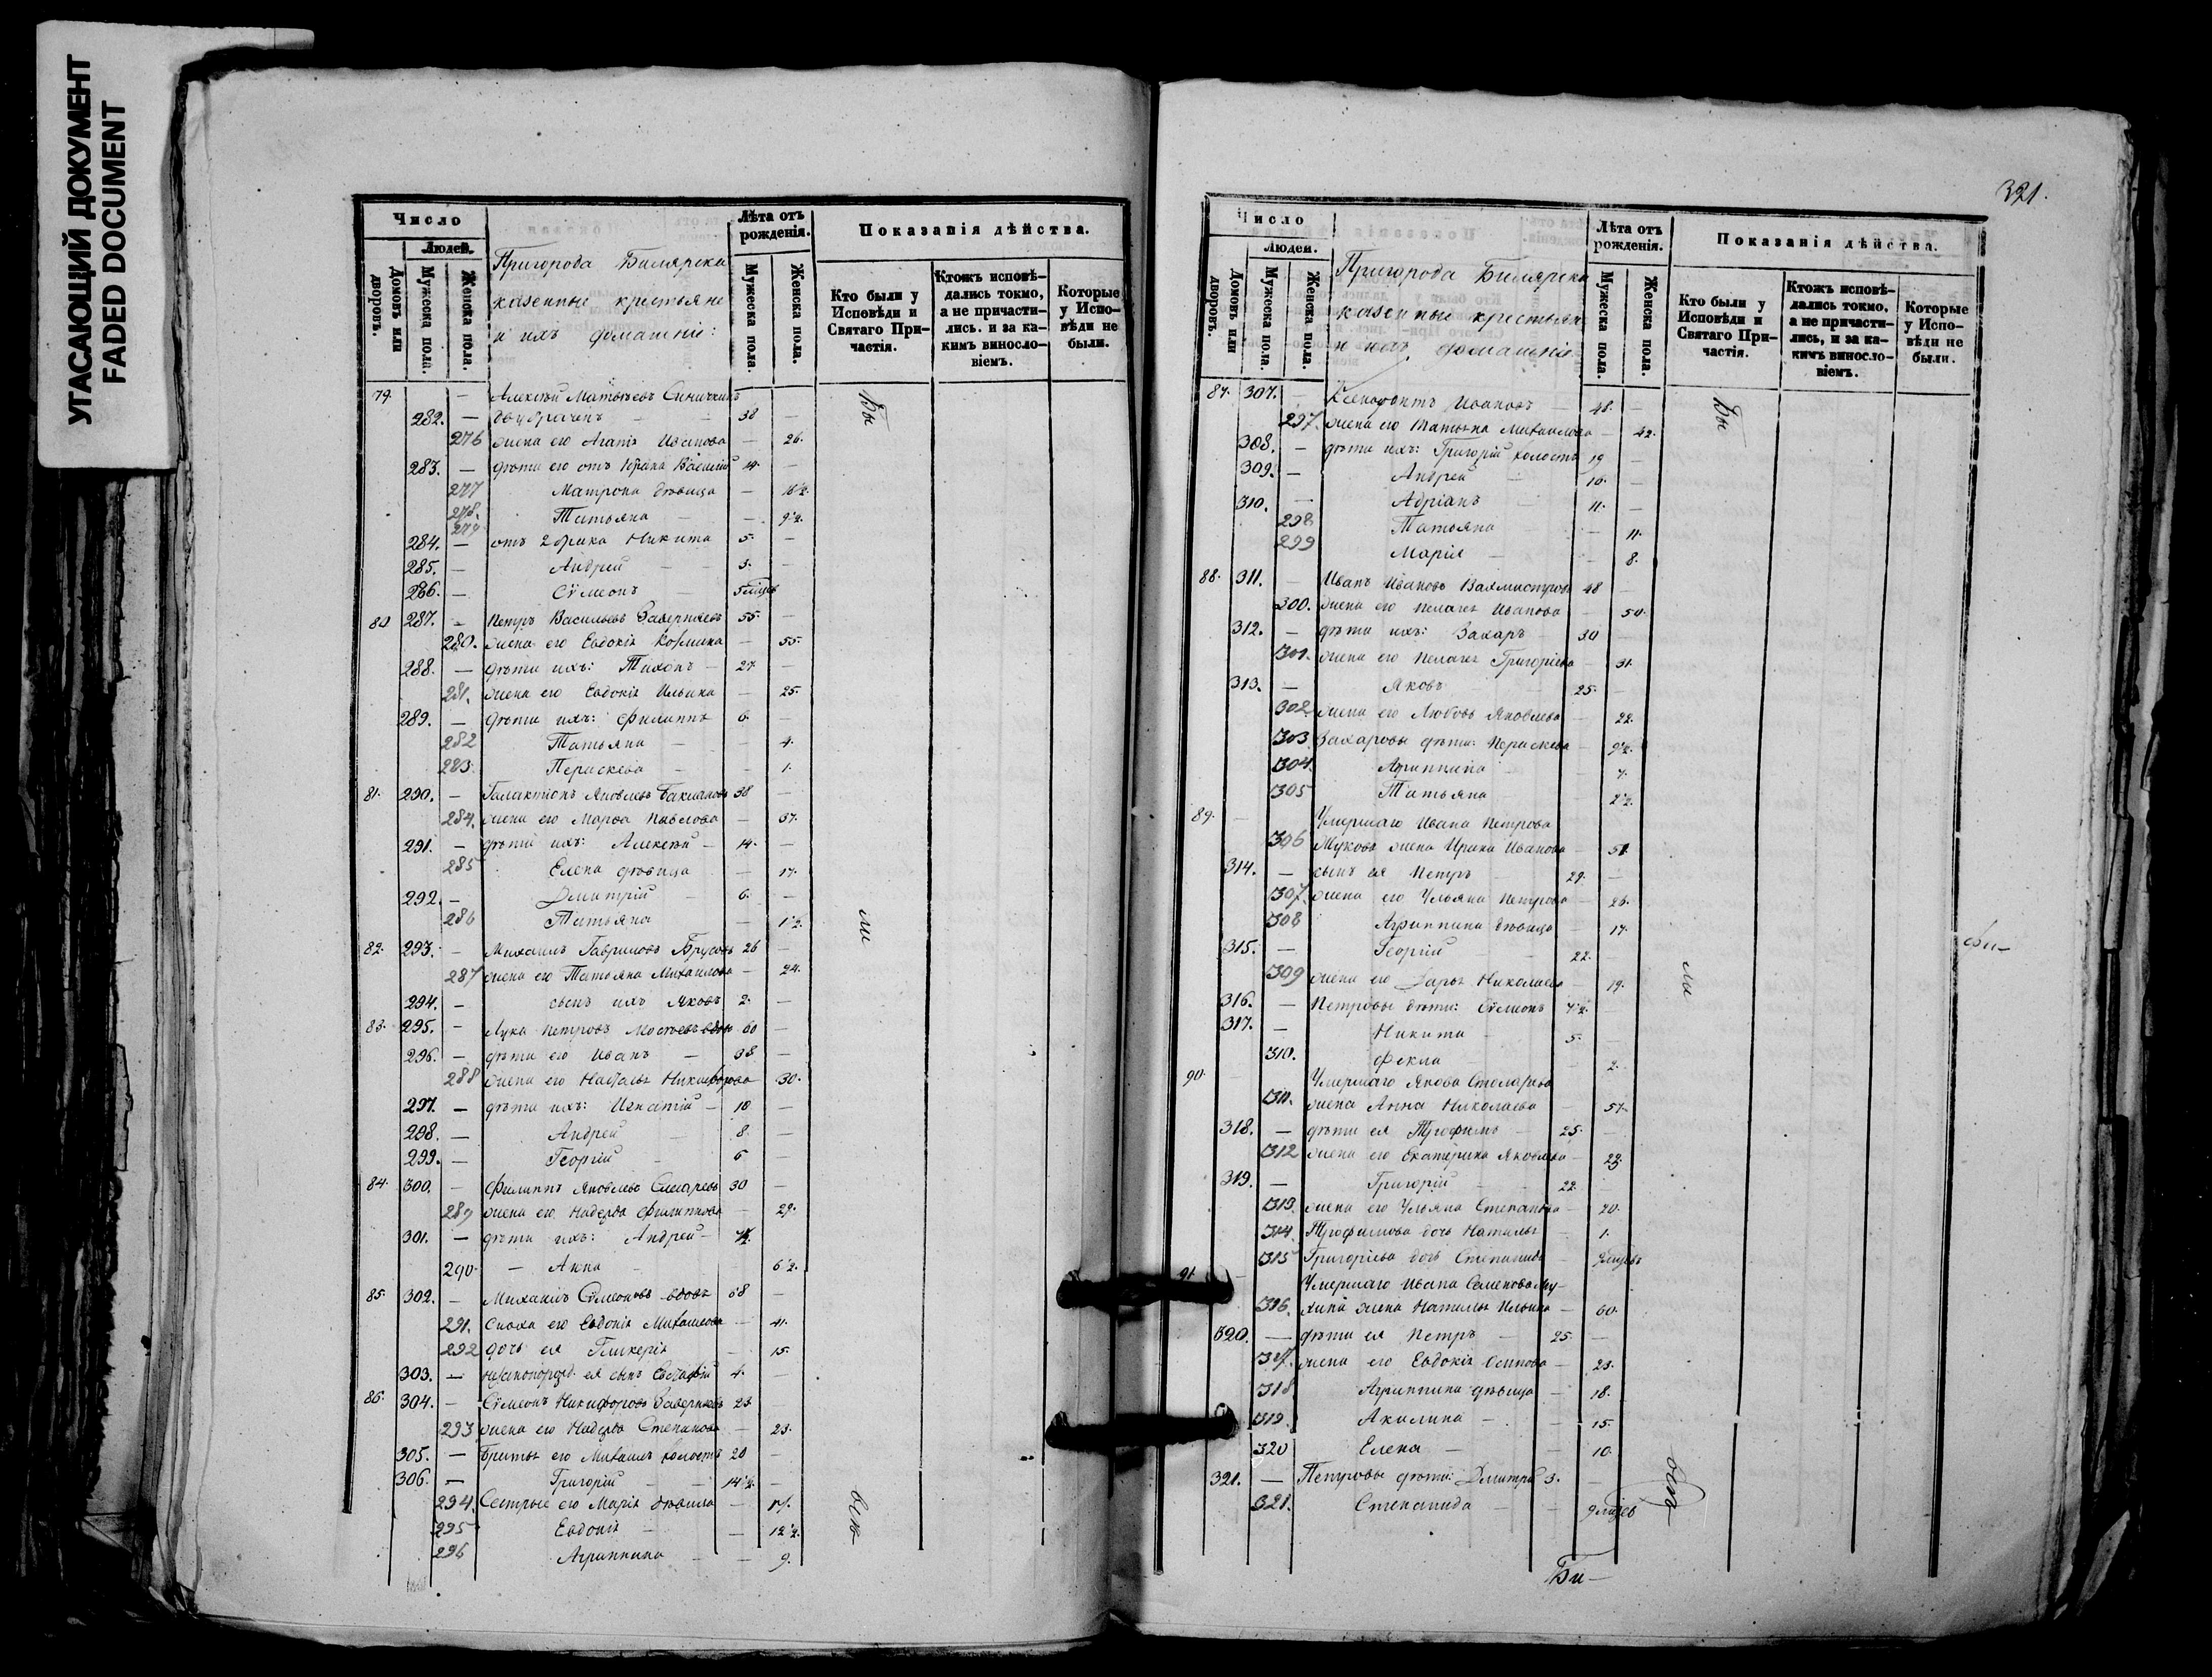 УГАСАЮЩИЙ ДОКУМЕНТ
FADED DOCUMENT
Число
Людей.
Домовъ или дворовъ.
Мужеска пола.
Женска пола.
Пригорода Билярска
казенные крестьяне
и ихъ домашніе:
Лѣта отъ рожденія.
Мужеска пола.
Женска пола.
Показанія дѣйства.
Кто были у Исповѣди и Святаго Причастія.
Ктожъ исповѣдались токмо, а не причастились. и за какимъ винословіемъ.
Которые у Исповѣди не были.
79. — Алексѣй Матвѣевъ Синичкинъ
282. — двубраченъ — 38 —
276 жена его Агапія Иванова — 26.
283. — дѣти его отъ 1брака Василій 19. —
277 Матрона дѣвица —
278. Татьяна — — 9½.
279
284. — отъ 2 брака Никита 5. —
285. — Андрей — 3. —
286. — Сѵмеонъ — 5 мцевъ
80 287. — Петръ Васильевъ 55. —
280. жена его Евдокія Козмина — 55.
288. — дѣти ихъ: Тихонъ — 27. —
281. жена его Евдокія Ильина — 25.
289. — дѣти ихъ: Филиппъ 6. —
282 Татьяна — — 4.
283. Перискева — — 1.
81. 290. — Галактіонъ Яковлевъ 38 —
284. жена его Марѳа Павлова — 37.
291. — дѣти ихъ: Алексѣй — 14. —
285 Елена дѣвица — 17.
292. — Димитрій — 6. —
286 Татьяна — 1½.
82. 293. — Михаилъ Гавриловъ Брусовъ 26 —
287 жена его Татьяна Михаилова — 24.
294. — сынъ ихъ Яковъ 2. —
83. 295. — Лука Петровъ 60 —
296. — дѣти его Иванъ — 38 —
288 жена его Наталья Никифорова 30.
297. — дѣти ихъ: Игнатій — 10 —
298. — Андрей — 8. —
299. — Георгій — 6 —
84. 300. — Филиппъ Яковлевъ Слесаревъ 30 —
289 жена его Надежда Филиппова — 29.
301. — дѣти ихъ: Андрей —
290. — Анна — 6½.
85. 302. — Михаилъ Сѵмеоновъ вдовъ 68 —
291. Сноха его Евдокія — 41.
292 дочь ея Гликерія — 15.
303. — ея сынъ Евстафій 4. —
86. 304. — Сѵмеонъ Никифоровъ 23 —
293 жена его Надежда Степанова — 23.
305. — Братья его Михаилъ холостъ 20 —
306. — Григорій — — 14½. —
294. Сестры его Марія дѣвица — 17.
295 Евдокія — — 12½.
296 Агриппина — — 9.
Бы
ли
всѣ
321.
Число
Людей.
Домовъ или дворовъ.
Мужеска пола.
Женска пола.
Пригорода Билярска
казенные крестьяне
и ихъ домашніе
Лѣта отъ рожденія.
Мужеска пола.
Женска пола.
Показанія дѣйства.
Кто были у Исповѣди и Святаго Причастія.
Ктожъ исповѣдались токмо, а не причастились, и за какимъ винословіемъ.
Которые у Исповѣди не были.
87. 307. — Ксенофонтъ Ивановъ — 48. —
297. жена его Татьяна Михаилова — 42.
308. — дѣти ихъ: Григорій холостъ 19 —
309. — Андрей — 16. —
310. — Адріанъ — 11. —
298 Татьяна — 11.
299 Марія — 8.
88. 311. — Иванъ Ивановъ 48 —
300. жена его Пелагея Иванова — 50.
312. — дѣти ихъ: Захаръ — 30 —
301. жена его Пелагея Григорьева — 31.
313. — Яковъ — 25. —
302 жена его Любовь Яковлева — 22.
303. Захаровы дѣти: Перискева — 9½.
304. Агриппина — 7.
305 Татьяна — 2½.
89. — Умершаго Ивана Петрова
306 жена Ирина Иванова — 51.
314. — сынъ ея Петръ — 29. —
307. жена его Ульяна Петрова — 26.
308 Агриппина дѣвица — 17.
315. — Георгій — 22. —
309 жена его Дарья Николаева — 19.
316. — Петровы дѣти: Сѵмеонъ 7½. —
317. — Никита — 5. —
310. Фекла — 2.
90. Умершаго Якова Столярова
311. жена Анна Николаева — 57.
318. — дѣти ея Трофимъ — 25. —
312 жена его Екатерина Яковлева — 23.
319. — Григорій — 22. —
313. жена его Ульяна Степанова — 20.
314. Трофимова дочь Наталья — 1.
315 Григорьева дочь Степанида — мцевъ
91. — Умершаго Ивана Семенова Му-
316. хина жена Наталья Ильина — 60.
320. — дѣти ея Петръ — 25. —
317. жена его Евдокія Осипова — 23.
318 Агриппина дѣвица — 18.
319. Акилина — 15.
320 Елена — — 10.
321. — Петровы дѣти: Димитрій 3. —
321. Степанида — — 9 мцевъ
Бы
ли
всѣ
фи-
Би-